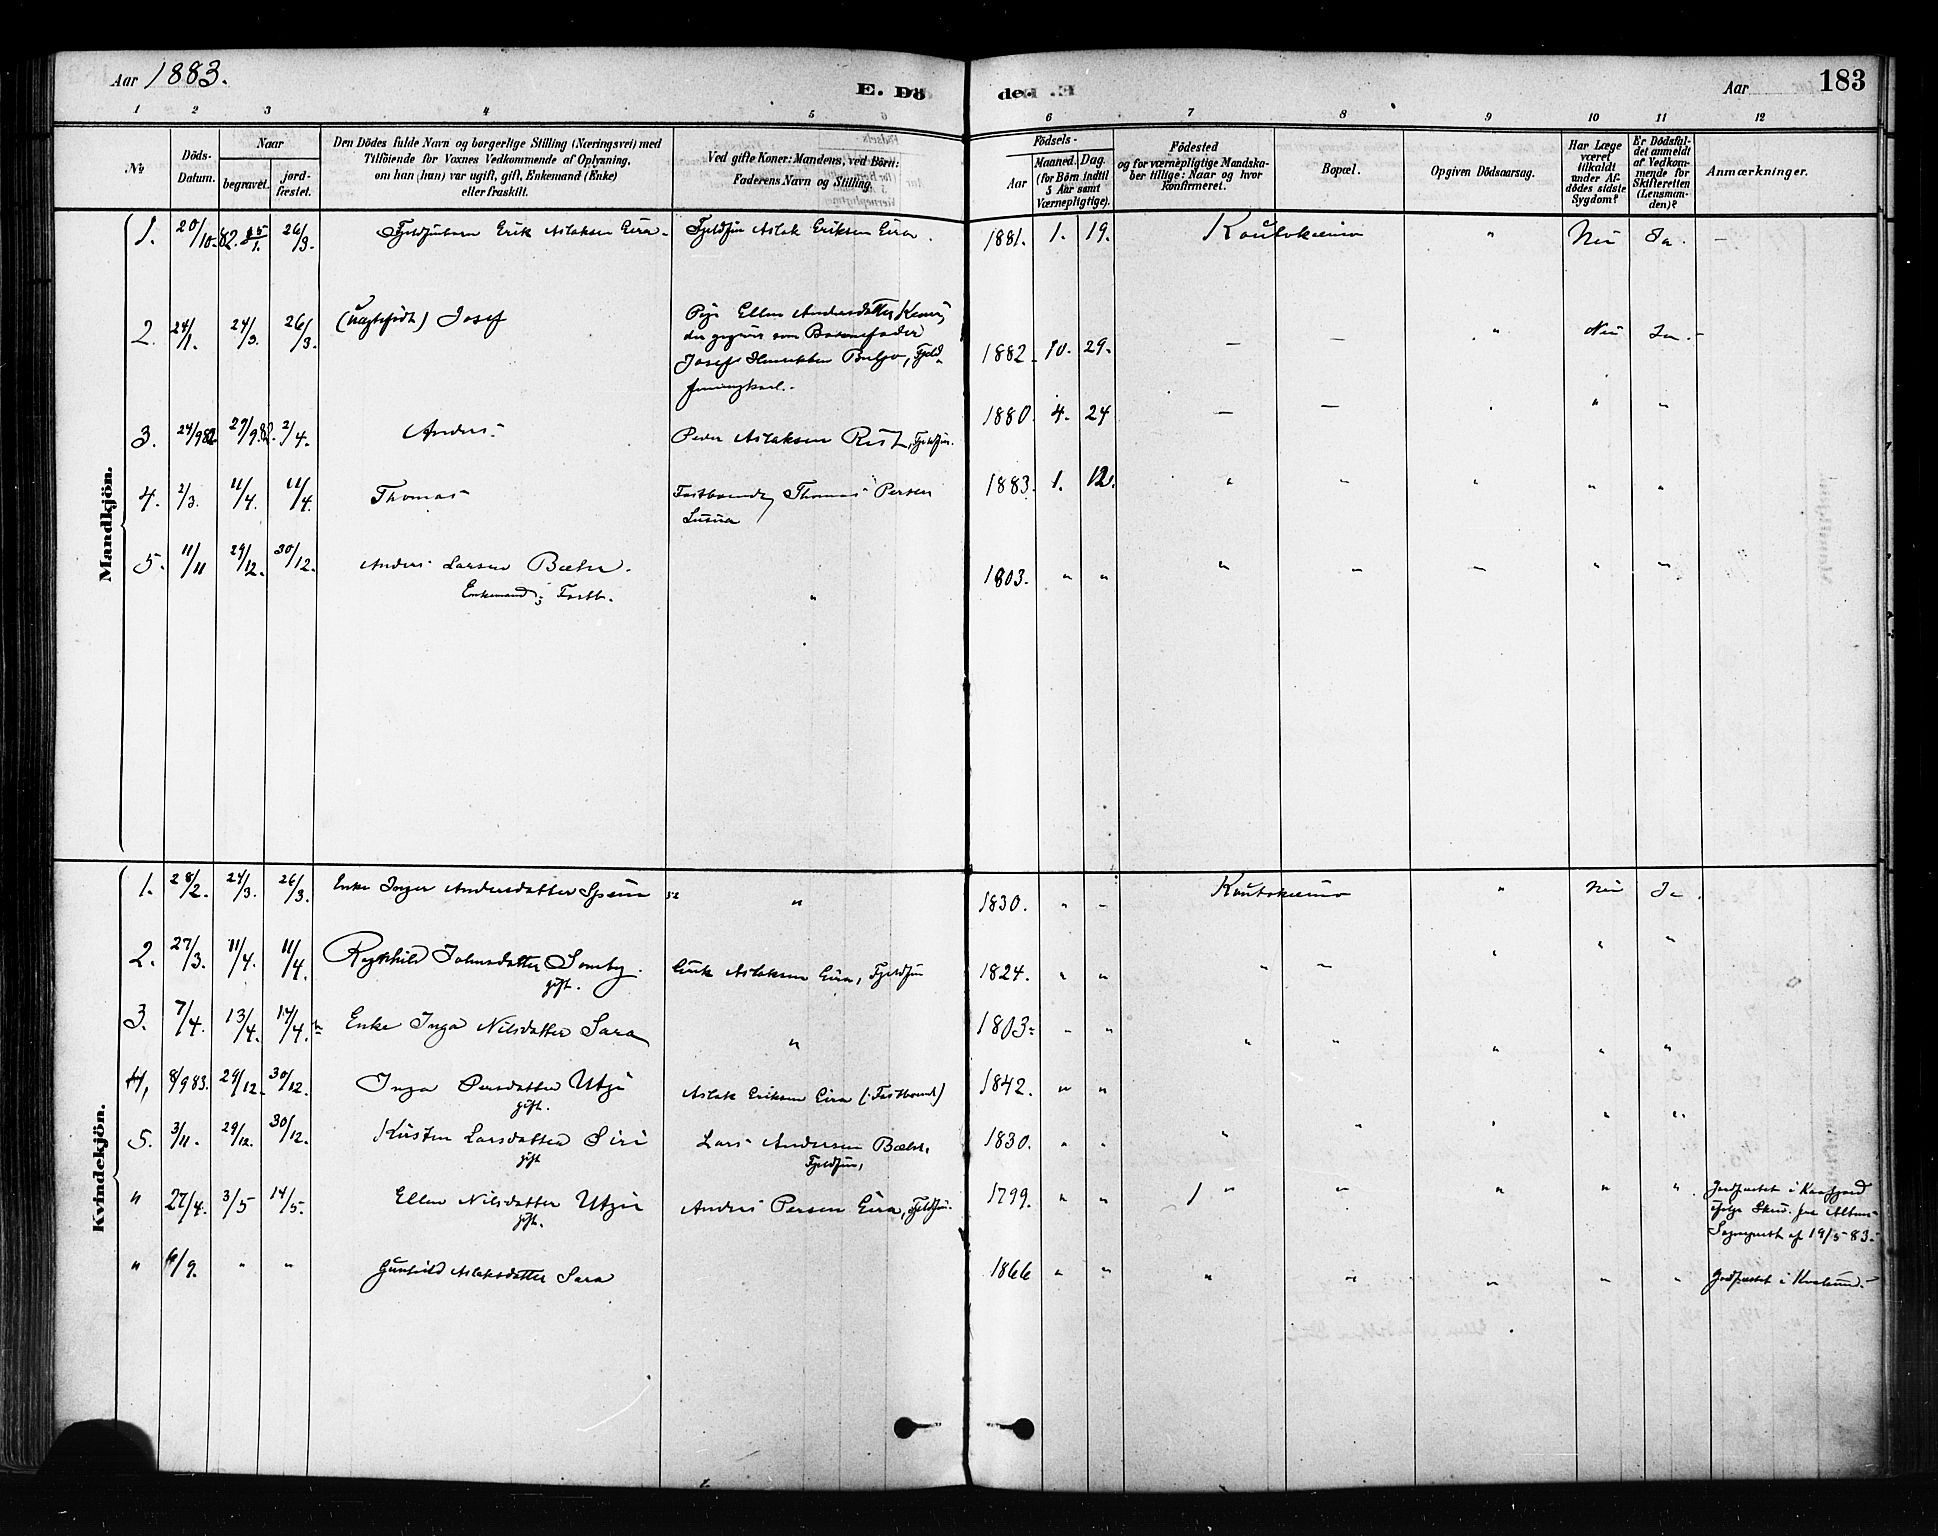 Aar 1883.
E. Dö
de. E.
Aar
183
1 2 3 4 5 6 6 7 8 9 10 11 12
No
Döds-
Datum.
Naar
begravet.
jord-
fæstet.
Den Dödes fulde Navn og borgerlige Stilling (Næringsvei) med
Tilföiende for Voxnes Vedkommende af Oplysning,
om han (hun) var ugift, gift, Enkemand (Enke)
eller fraskilt.
Ved gifte Koner: Mandens, ved Börn:
Faderens Navn og Stilling.
Födsels-
Aar
Maaned. Dag.
(for Börn indtil
5 Aar samt
Værnepligtige).
Födested
og for værnepligtige Mandska-
ber tillige: Naar og hvor
konfirmeret.
Bopæl.
Opgiven Dödsaarsag.
Har Læge
været
tilkaldt
under Af-
dödes sidste
Sygdom?
Er Dödsfal-
det anmeldt
af Vedkom-
mende for
Skifteretten
(Lensman-
den)?
Anmærkninger.
Mandkjön.
1. 20/10 82. 26/3. Fjeldfinbarn Erik Aslaksen Eira. Fjeldfin Aslak Eriksen Eira. 1881. 1. 19. Koutokeino " Nei Ja. –
2. 24/1. 24/3. 26/3. (uægtefødt) Josef Pige Ellen Andersdatter
der opgiver som Barnefader
Josef Henriksen Buljo, Fjeld-
1882. 10. 29. – – " Nei Ja. –
3. 24/9 82. 27/9 82. 2/4. Anders Peder Aslaksen Rist, Fjeldfin. 1880 4. 24 – – " " "
4. 2/3. 11/4. 11/4. Thomas Fastboende Thomas Persen
1883. 1. 12. " " " " "
5. 11/11 29/12. 30/12. Anders Larsen Bælse.
Enkemand; Fastb. " 1803. " " " – – " –
Kvindekjön.
1. 28/2. 24/3. 26/3. Enke Inger Andersdatter Spein 52 " 1830. " – Koutokeino " Nei Ja.
2. 27/3. 11/4. 11/4. Ragnhild Johnsdatter Somby.
gift. Erik Aslaksen Eira, Fjeldfin 1824. " " " – " " "
3. 7/4. 13/4. 14/4. Enke Inga Nilsdatter Sara " 1803. " " " " " " "
4, 8/9 83. 29/12. 30/12. Inga Persdatter Utzi
gift. Aslak Eriksen Eira (Fastboende) 1842. " "
5. 3/11. 29/12. 30/12. Kirsten Larsdatter Siri
gift Lars Andersen Bælse.
Fjeldfin, 1830. " " " " " " "
" 27/4. 3/5 14/5. Ellen Nilsdatter Utzi
gift. Anders Persen Eira, Fjeldfin. 1799. " " " – " " " Jordfæstet i Kaafjord
ifølge Skriv. fra Alten-
Sognepræst af 19/5 83.
" /9. " " Gunhild Aslaksdatter Sara 1866 " " " " " " " Jordfæstet i Kvalsund